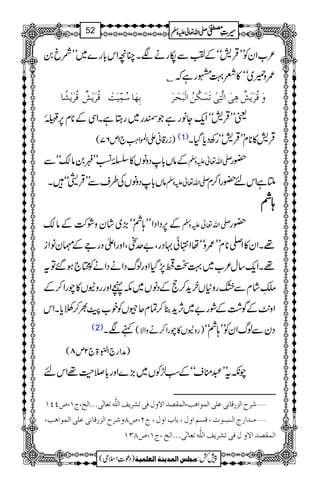 سیرتِ مصطفی صلی اللہ تعالٰی علیہ وسلم
52
عرب ان کو "قریش" کے لقب سے پکارنے لگے۔ چنانچہ اس بارے میں "شمرخ بن
عمرو حمیری" عرب کا شعر بہت مشہور ہے کہ ؎
وَ قُرَیْشٌ ھِیَ الَّتِیْ تَسْکُنُ الْبَحْرَ بِھَا سُمِّیَتْ قُرَیْشٌ قُرَیْشًا
یعنی "قریش" ایک جانور ہے جو سمندر میں رہتا ہے۔ اسی کے نام پر قبیلۂ
قریش کا نام "قریش" رکھ دیا گیا۔ (1) (زرقانی علی المواہب ج۱ ص۷۶)
حضور صلی اللہ تعالٰی علیہ وسلم کے ماں باپ دونوں کا سلسلۂ نسب "فہر بن مالک" سے
ملتا ہے اس لئے حضور اکرم صلی اللہ تعالٰی علیہ وسلم ماں باپ دونوں کی طرف سے "قریشی" ہیں۔
ہاشم
حضور صلی اللہ تعالٰی علیہ وسلم کے پردادا "ہاشم" بڑی شان و شوکت کے مالک
تھے۔ ان کا اصلی نام "عمرو" تھا انتہائی بہادر، بے حد سخی، اور اعلیٰ درجے کے مہمان نواز
تھے۔ ایک سال عرب میں بہت سخت قحط پڑ گیا اور لوگ دانے دانے کو محتاج ہو گئے تو یہ
ملکِ شام سے خشک روٹیاں خرید کر حج کے دنوں میں مکہ پہنچے اور روٹیوں کا چورا کر کے
اونٹ کے گوشت کے شوربے میں ثرید بنا کر تمام حاجیوں کو خوب پیٹ بھر کر کھلایا۔ اس
دن سے لوگ ان کو "ہاشم" (روٹیوں کا چورا کرنے والا) کہنے لگے۔ (2)
(مدارج النبوۃ ج۲ ص۸)
چونکہ یہ "عبدمناف" کے سب لڑکوں میں بڑے اور با صلاحیت تھے اس لئے
—شرح الزرقانی علی المواھب،المقصد الاول فی تشریف اللّٰہ تعالٰی...الخ،ج۱،ص۱۴۴
—مدارج النبوت ، قسم اول ، باب اول ، ج۲،ص۸ وشرح الزرقانی علی المواھب،
المقصد الاو ل فی تشریف اللّٰہ تعالٰی...الخ ،ج۱،ص۱۳۸
پیش کش: مجلس المدینۃ العلمیۃ (دعوتِ اسلامی)